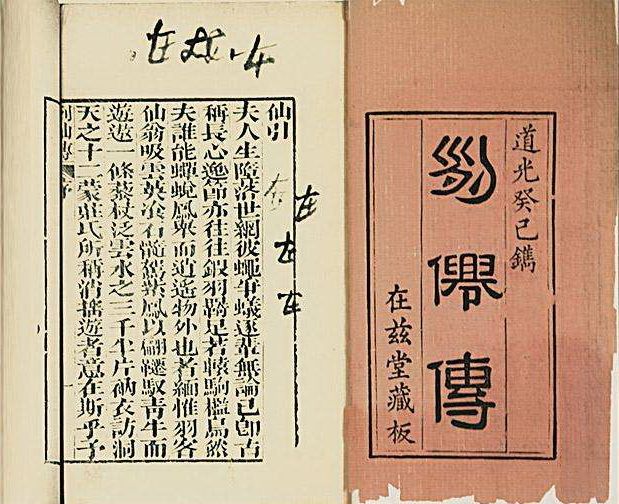 道光癸巳鐫
列僊傳
在茲堂藏板
仙引
夫人生墮落世網彼蠅爭蟻逐輩無論已即古
稱長心逸節亦往往鎩羽羈足若轅駒檻鳥然
夫誰能蟬蛻鳳舉而逍遙物外也者緬惟羽客
仙翁吸雲英飡石髓駕紫鳳以翩躚馭青牛而
遊遨一條藜杖泛雲水之三千半片衲衣訪洞
天之十二蒙莊氏所稱消搖遊者意在斯乎予
列仙傳 序
在
在
在
在